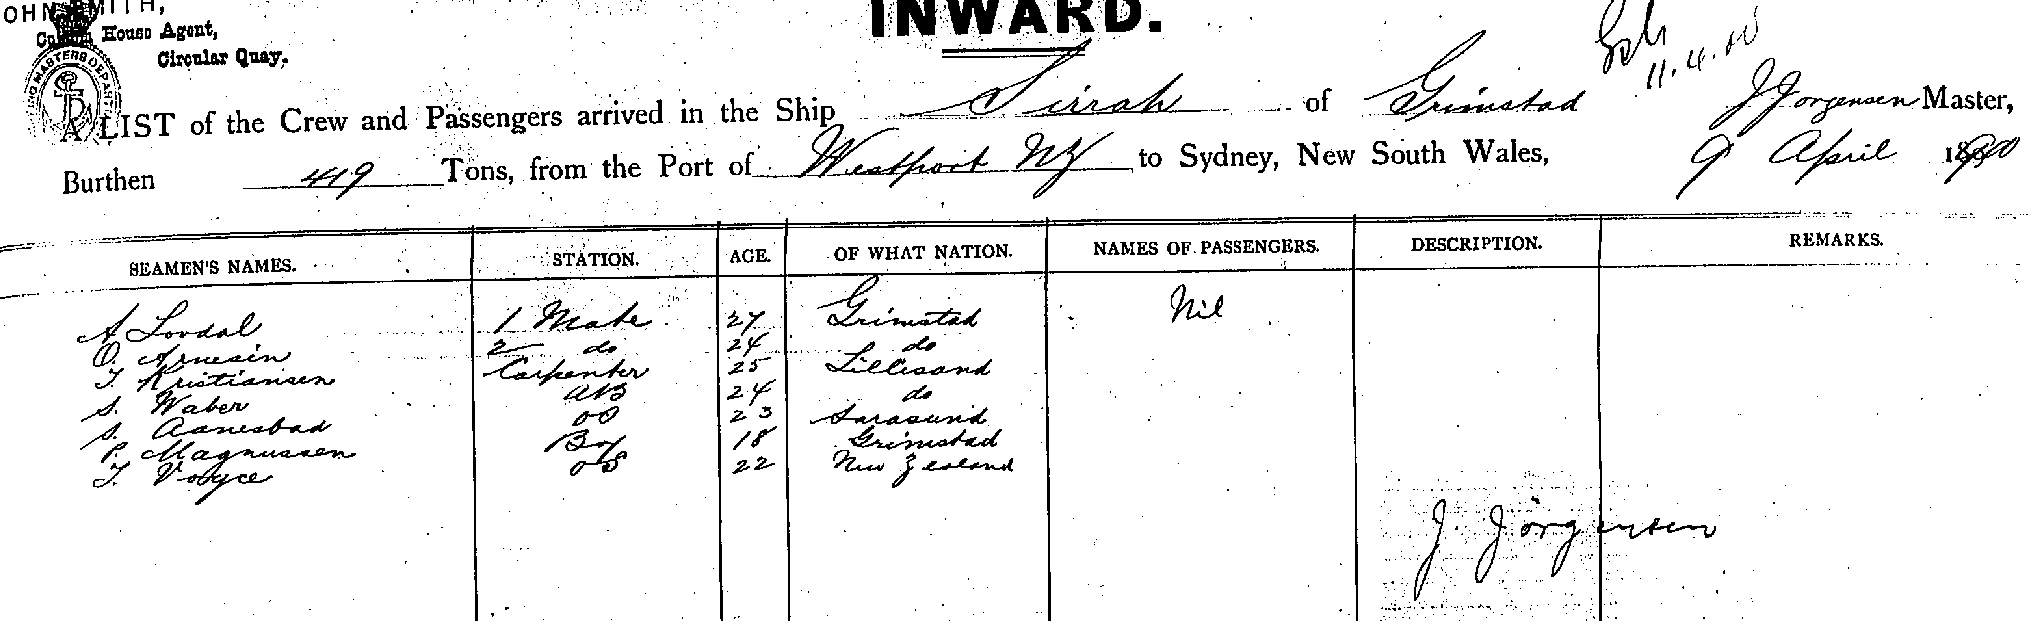 OHN SMITH,
House Agent,
Circular Quay.
INWARD.
11.4.00
A LIST of the Crew and Passengers arrived in the Ship Sirrah of Grimstad J Jorgensen Master,
Burthen 419 Tons, from the Port of Westport NZ to Sydney, New South Wales, 9 April 1900
SEAMEN'S NAMES. STATION. AGE. OF WHAT NATION. NAMES OF PASSENGERS. DESCRIPTION. REMARKS.
A Lovdal 1 Mate 27 Grimstad Nil
O. Arnesen 2 do 24 do
T. Kristiansen Carpenter 25 Lillesand
S. Waber AB 24 do
S. Aanesbad OS 23 Sarasund
P. Magnussen Boy 18 Grimstad
T. Voyce OS 22 New Zealand
J. Jörgensen